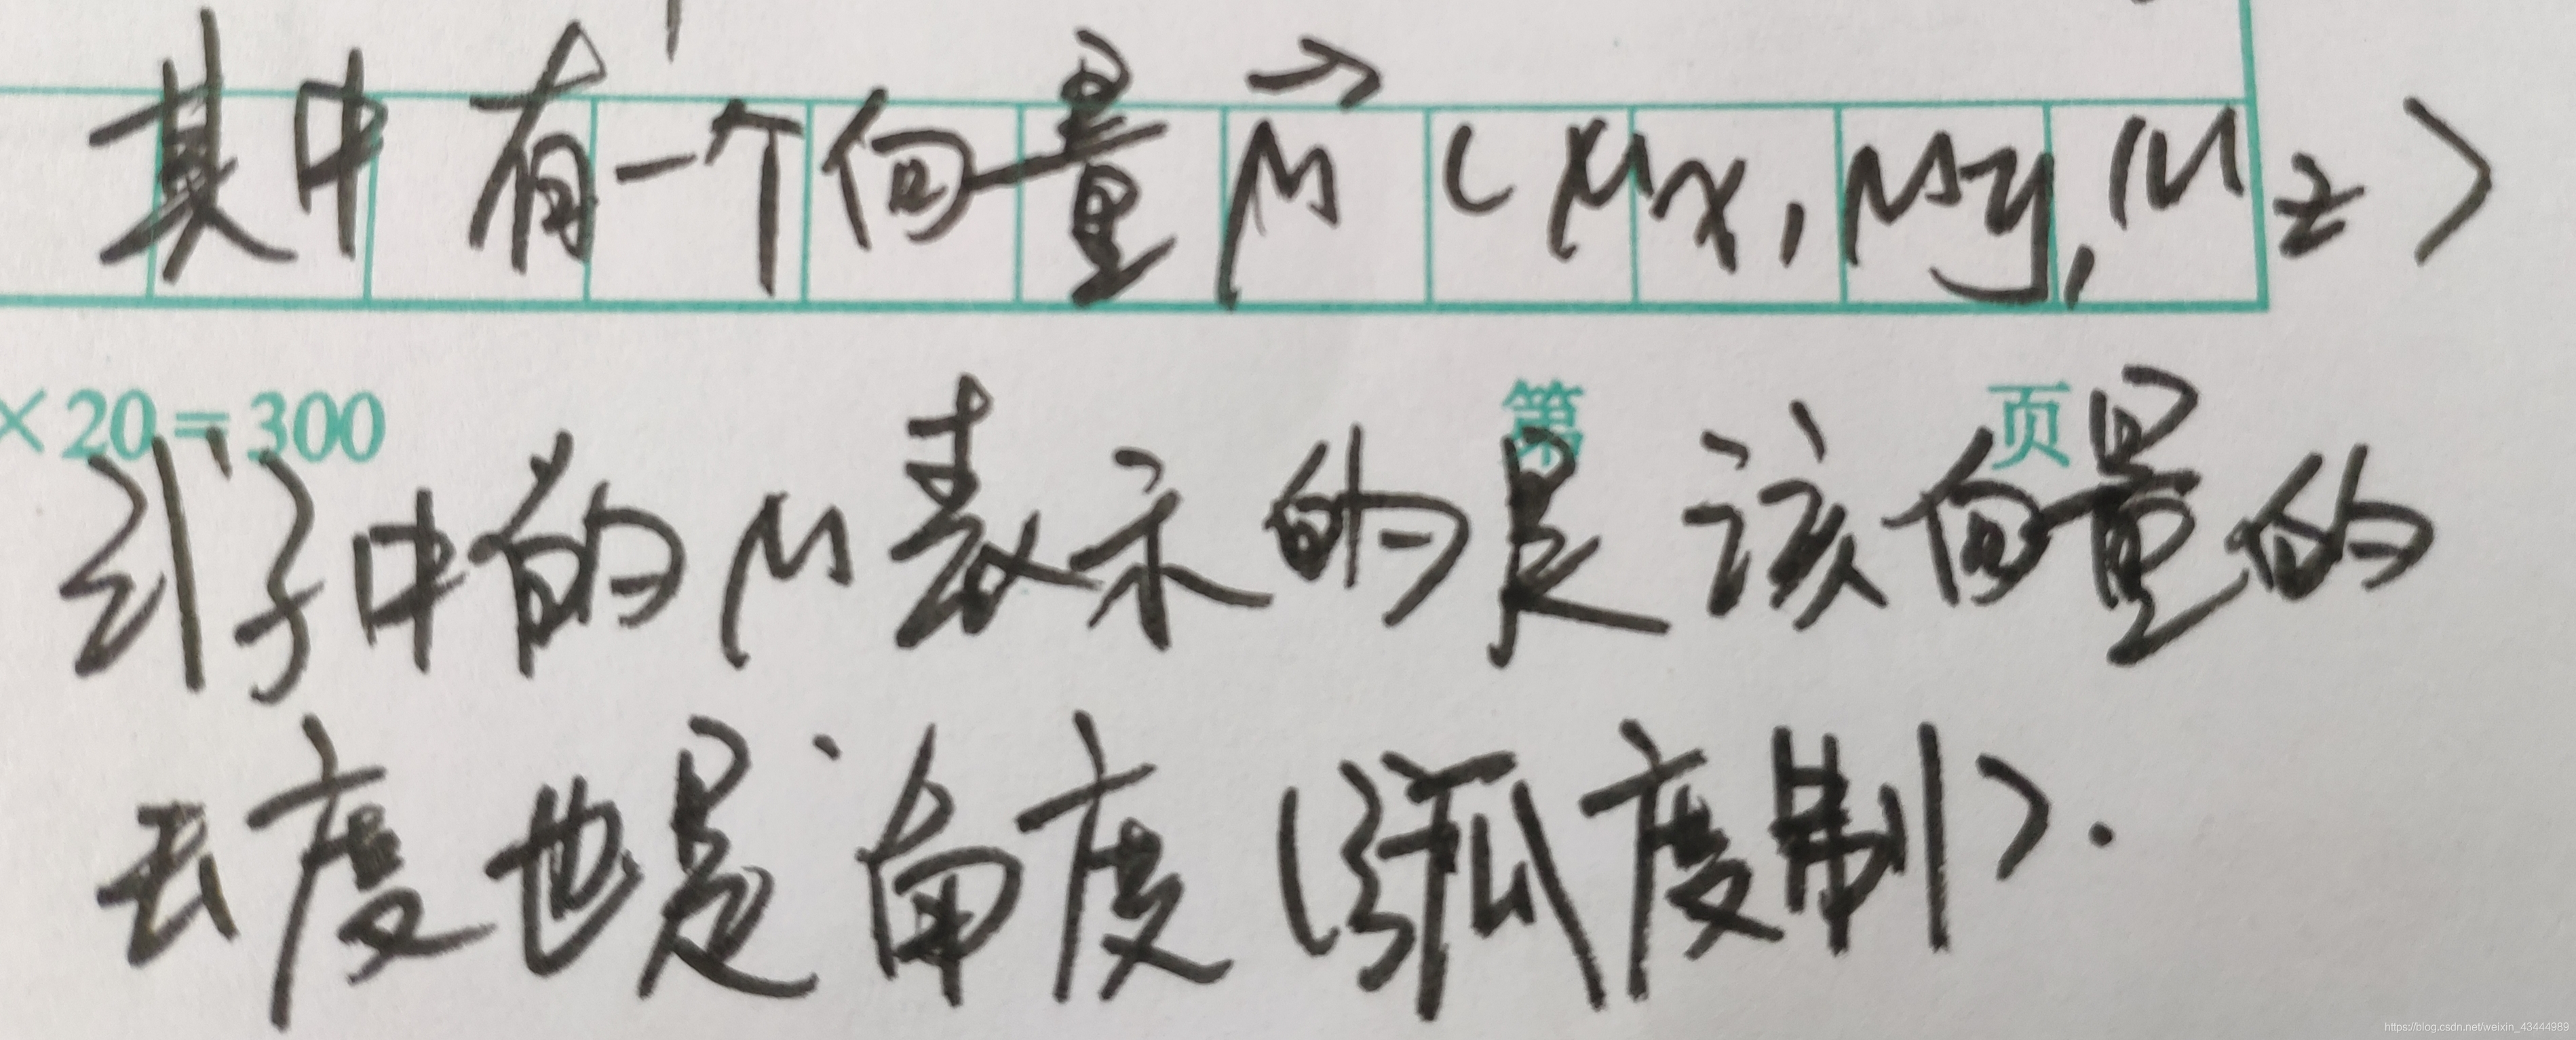 其中有一个向量 μ⃗ (μx, μy, μz)
×20=300 第 页
引子中的 μ 表示的是该向量的
长度也是角度(弧度制).
https://blog.csdn.net/weixin_43444989